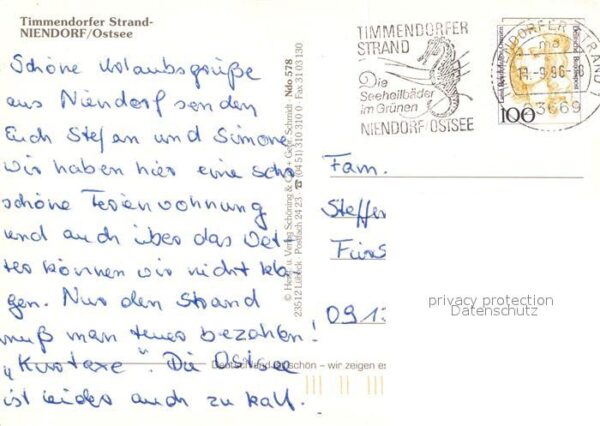 Timmendorfer Strand-
NIENDORF/Ostsee
Schöne Urlaubsgrüße
aus Niendorf senden
Euch Stefan und Simone
wir haben hier eine sehr
schöne Ferienwohnung
und auch über das Wet-
ter können wir nicht kla-
gen. Nur den Strand
muß man teuer bezahlen!
"Kurtaxe". Die Ostsee
ist leider auch zu kalt.
© Herst. u. Verlag Schöning & Co + Gebr. Schmidt · Ndo 578
23512 Lübeck · Postfach 24 23 ☎ (04 51) 310 310 0 · Fax 31 03 130
TIMMENDORFER
STRAND
Die
Seeheilbäder
im Grünen
NIENDORF/OSTSEE
NDORFER STRAND 1
ma
11.-9.96-8
23669
Deutsche Bundespost
100
Fam.
Steffen
Fürs
091
privacy protection
Datenschutz
Deutschland ist schön – wir zeigen es